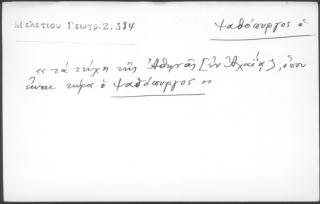 Μελετίου Γεωγρ. 2, 384
Ψαθόπυργος ὁ
«τὰ τείχη τῆς Ἀθηνᾶς [ἐν Ἀχαΐᾳ], ὅπου
εἶναι τώρα ὁ Ψαθόπυργος»